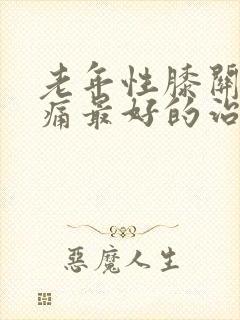 老年性膝關
痛最好的治
惡魔人生